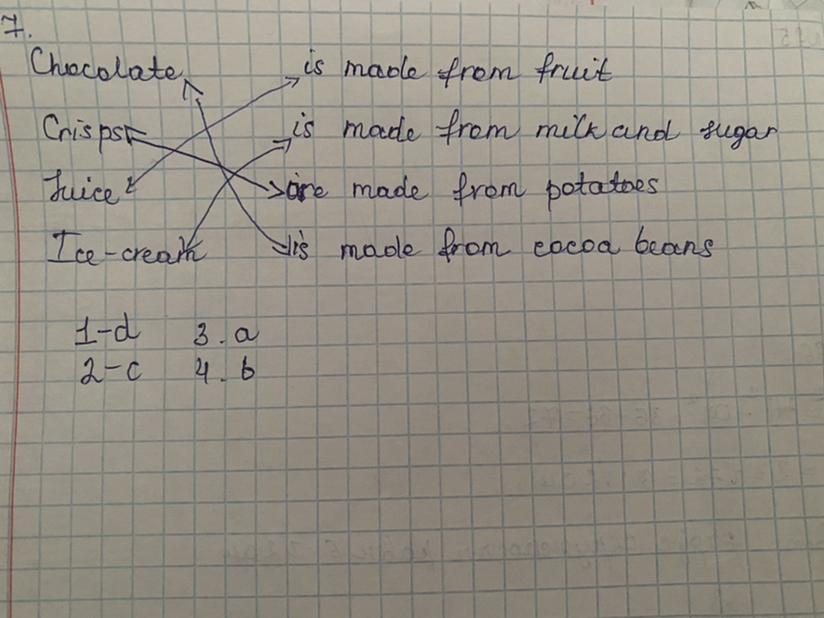 7.
Chocolate is made from fruit
Crisps is made from milk and sugar
Juice are made from potatoes
Ice-cream is made from cocoa beans
1-d 3. a
2-c 4. b